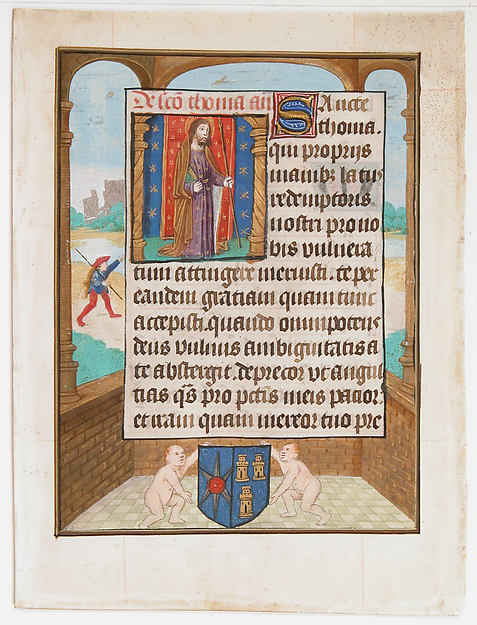 De scō thoma añ
Sancte
thoma.
qui proprijs
manibꝫ latus
redemptoris
nostri pro no
bis vulnera
tum attingere meruisti. te per
eandem gratiam quam tunc
accepisti. quando omnipotens
deus vulnus ambiguitatis a
te abstergit. deprecor vt angus
tias q̄s pro pctīs meis patior.
et iram quam mereor tuo pre